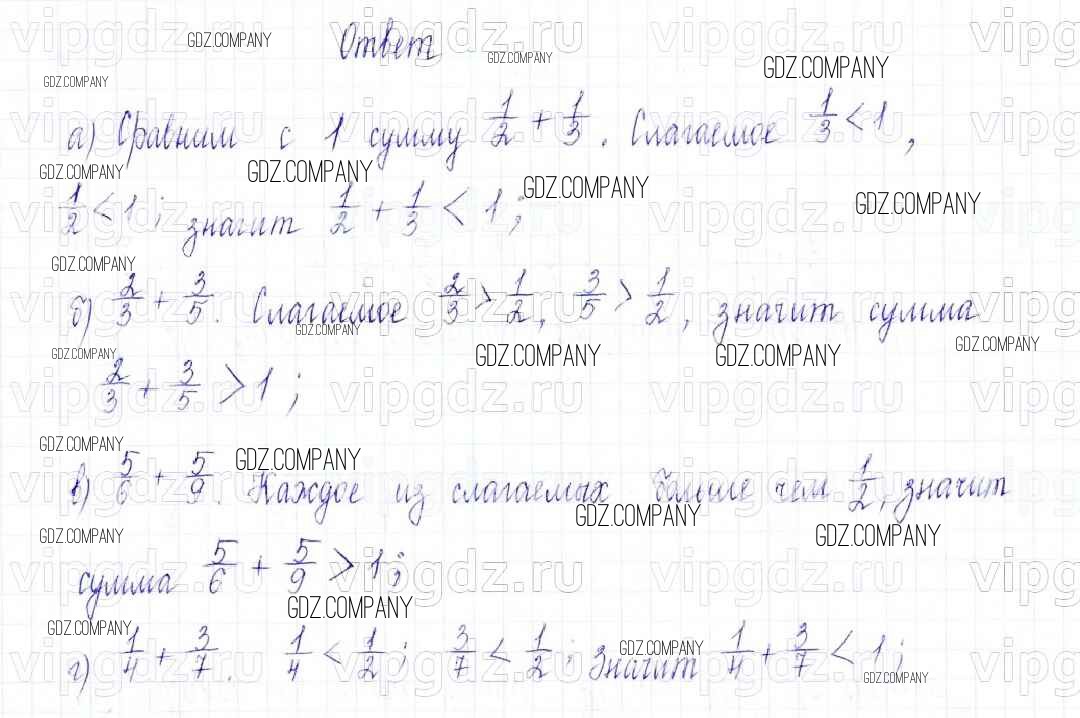 Ответ
а) Сравним с 1 сумму 1/2 + 1/3. Слагаемое 1/3 < 1,
1/2 < 1; значит 1/2 + 1/3 < 1;
б) 2/3 + 3/5. Слагаемое 2/3 > 1/2, 3/5 > 1/2, значит сумма
2/3 + 3/5 > 1;
в) 5/6 + 5/9. Каждое из слагаемых больше чем 1/2, значит
сумма 5/6 + 5/9 > 1;
г) 1/4 + 3/7. 1/4 < 1/2; 3/7 < 1/2; Значит 1/4 + 3/7 < 1;